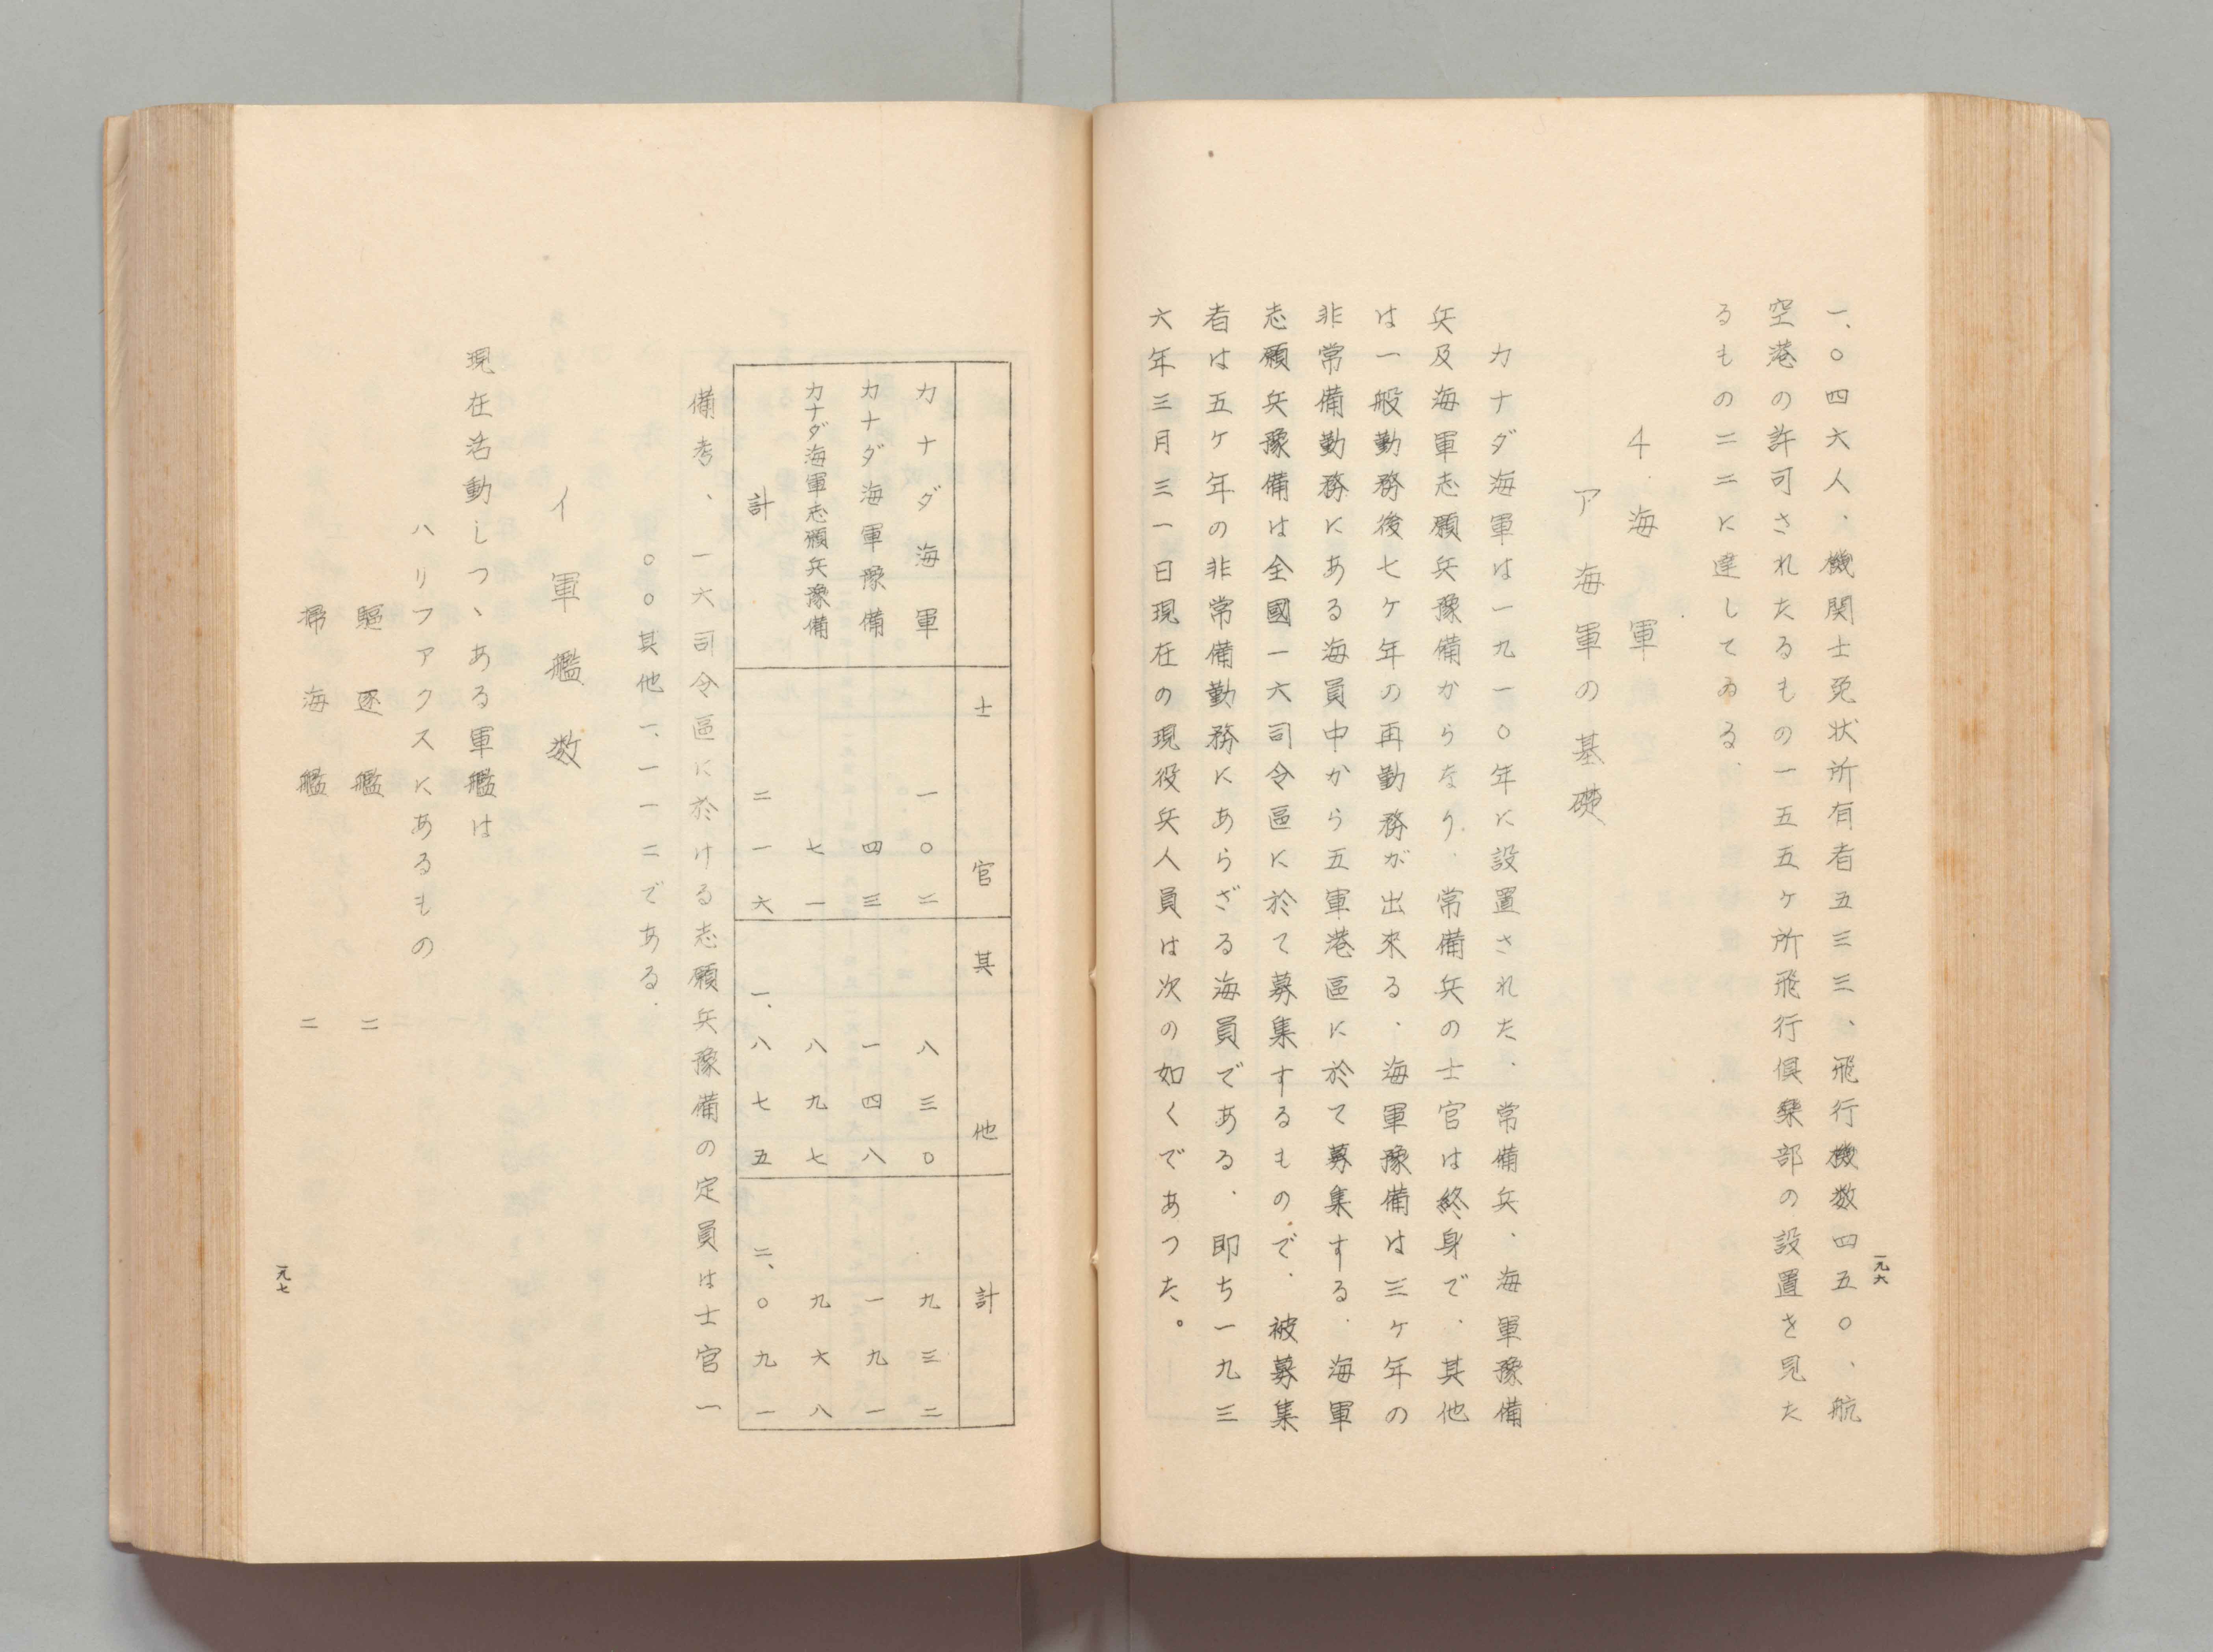 一、〇四六人、機関士免状所有者五三三、飛行機数四五〇、航
空港の許可されたるもの一五五ケ所飛行倶楽部の設置を見た
るもの二二に達してゐる.
4. 海軍
ア 海軍の基礎
カナダ海軍は一九一〇年に設置された、常備兵、海軍豫備
兵及海軍志願兵豫備からなり、常備兵の士官は終身で、其他
は一般勤務後七ケ年の再勤務が出來る.海軍豫備は三ケ年の
非常備勤務にある海員中から五軍港區に於て募集する.海軍
志願兵豫備は全國一六司令區に於て募集するもので.被募集
者は五ケ年の非常備勤務にあらざる海員である.即ち一九三
六年三月三一日現在の現役兵人員は次の如くであつた。
一九六
士官 其他 計
カナダ海軍 一〇二 八三〇 九三二
カナダ海軍豫備 四三 一四八 一九一
カナダ海軍志願兵豫備 七一 八九七 九六八
計 二一六 一、八七五 二、〇九一
備考、一六司令區に於ける志願兵豫備の定員は士官一
〇〇其他一、一一二である.
イ 軍艦数
現在活動しつゝある軍艦は
ハリファクスにあるもの
驅逐艦 二
掃海艦 二
一九七